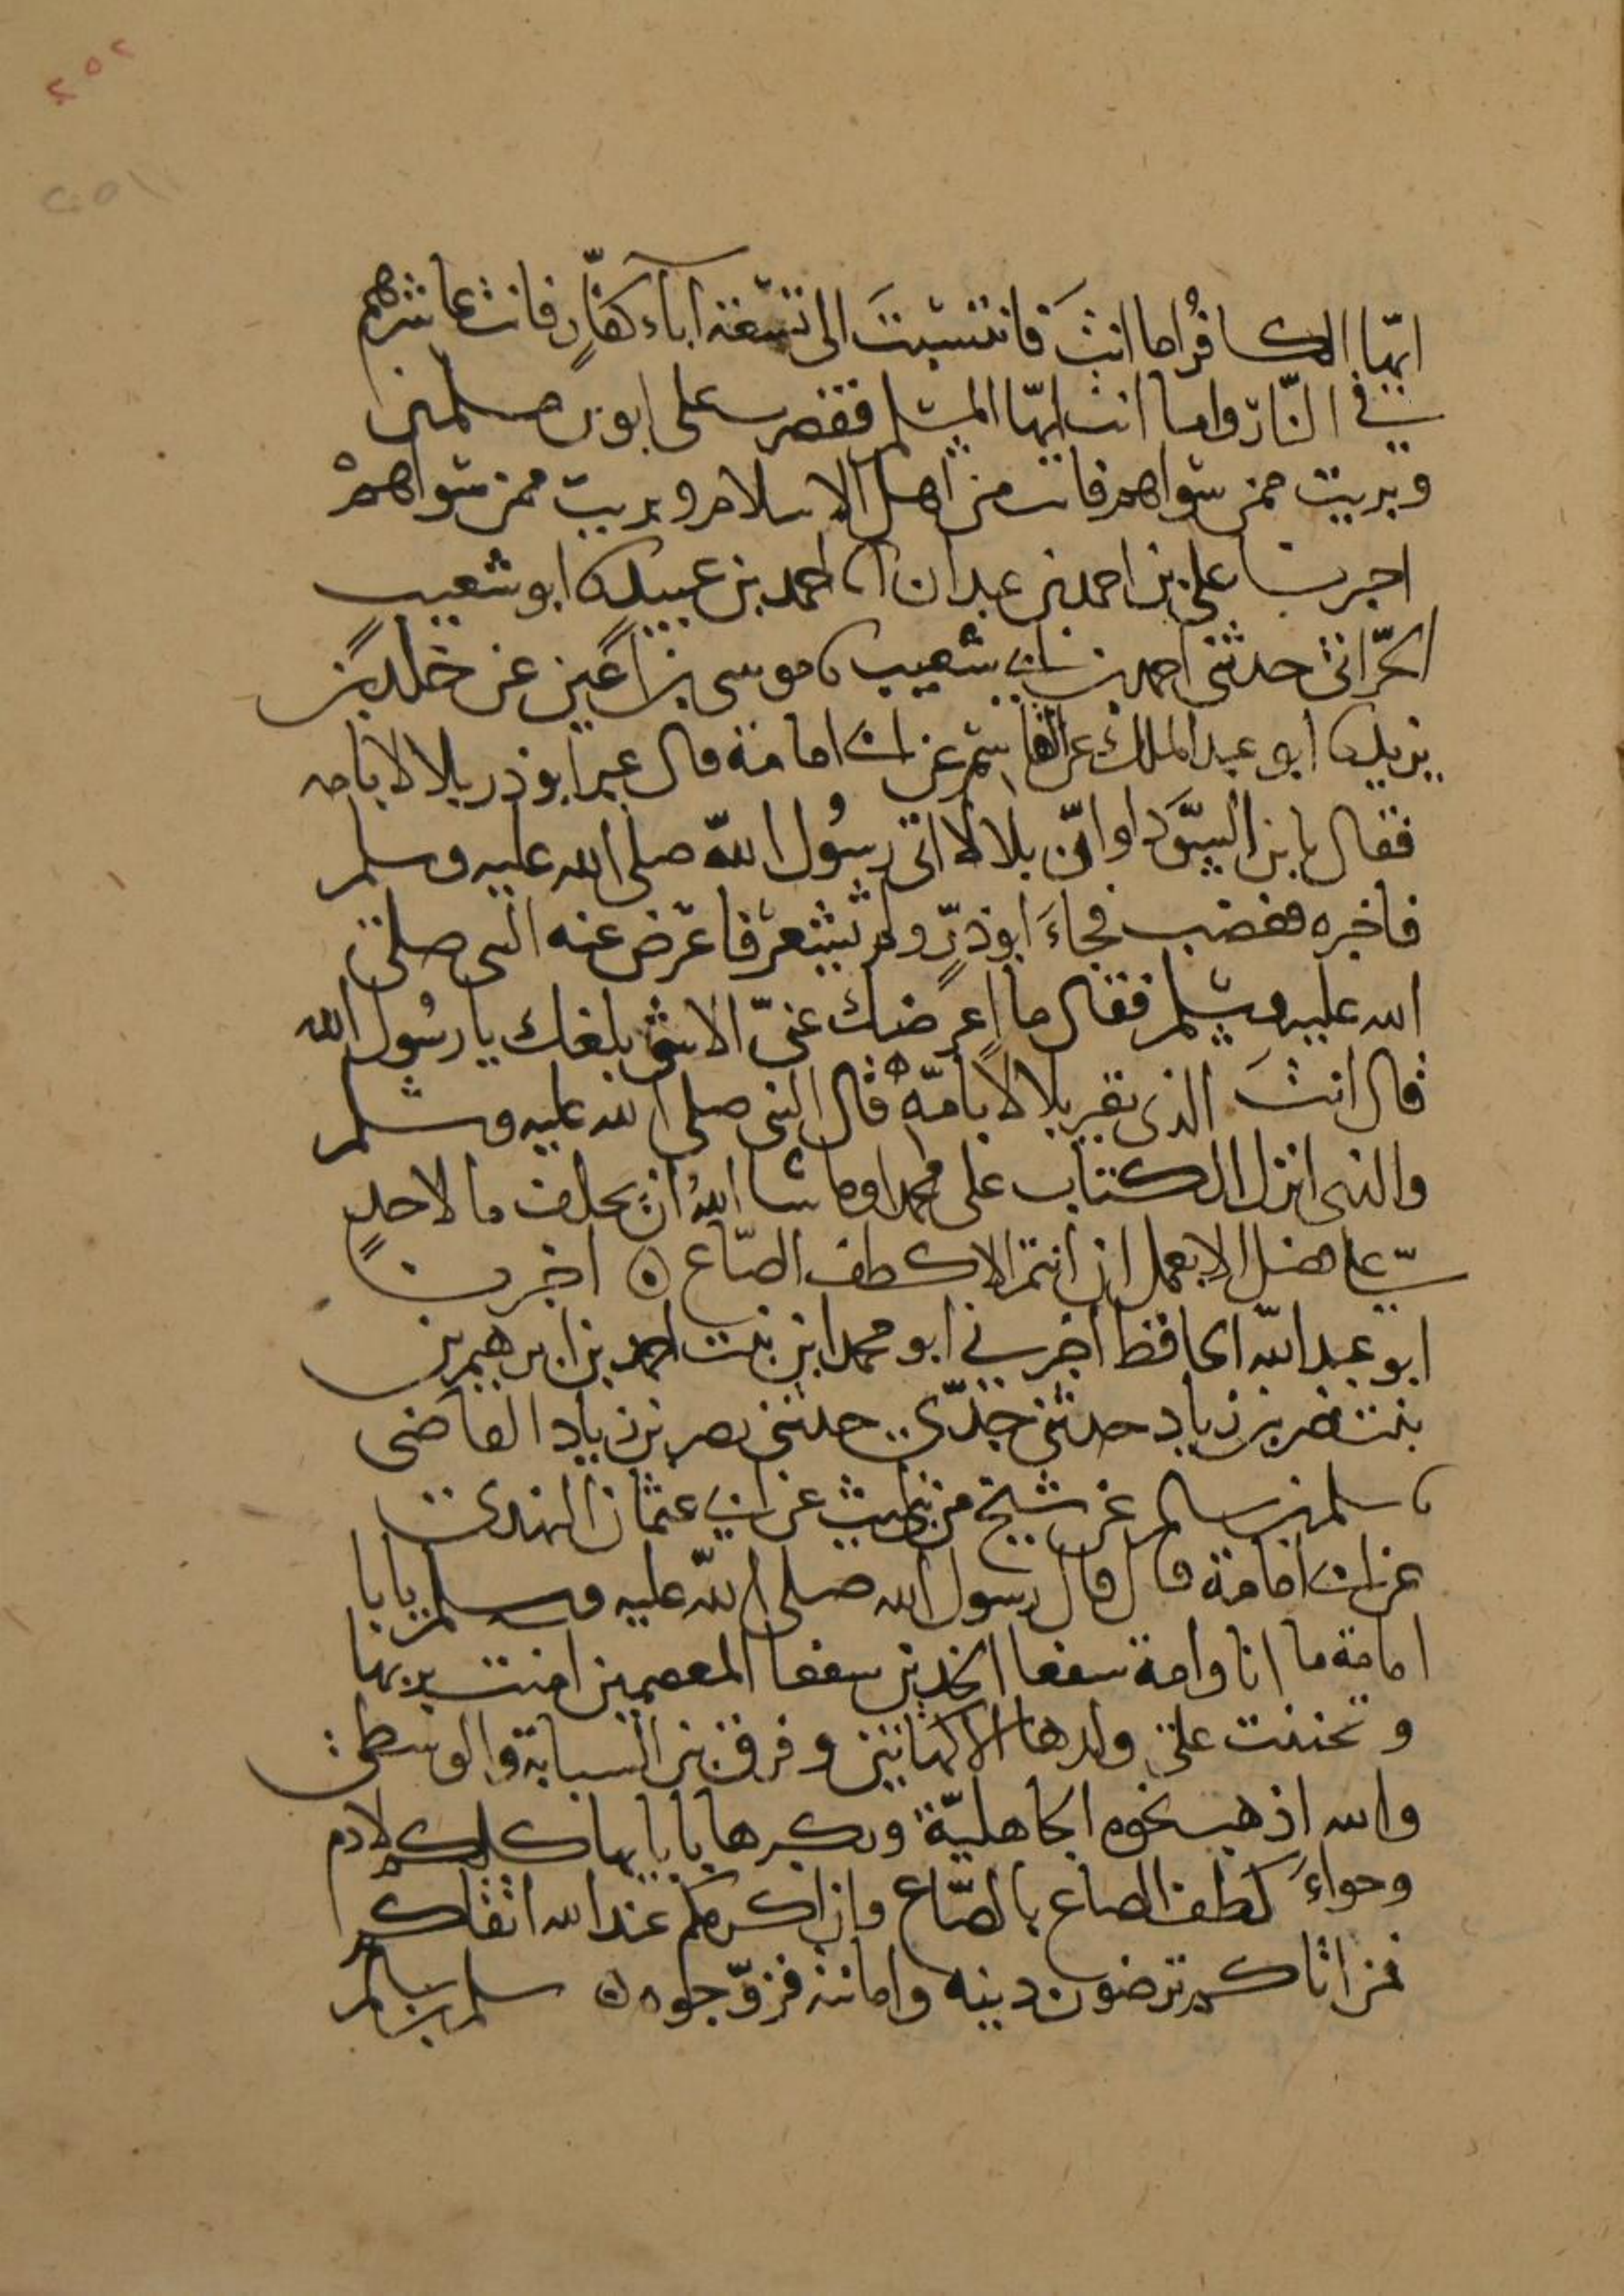 ٢٥٢
ايّها الكافُر اما انتَ فانتسبتَ الى تسعة آباء كفّارٍ فانت عاشرهم
في النّار واما انت ايّها المسلم فقصرت على ابوين مسلمين
وبريت ممن سواهم فانت من اهل الاسلام وبريت ممن سواهمْ
اخبرنا على بن احمد بن عبدان انا احمد بن عبيد نا ابو شعيب
الحرّانى حدثنى احمد بن ابى شعيب نا موسى بن اعين عن خلد بن
يزيد نا ابو عبد الملك عن القاسم عن ابى امامة قال عير ابو ذر بلالا بامه
فقال يا بن السّودا وانّ بلالا اتى رسُول اللّه صلى الله عليه وسلم
فاخبره فغضب فجاءَ ابو ذرٍّ ولم يشعر فاعرض عنه النبى صلى
الله عليه وسلم فقال ما اعرضك عنىّ الا شى بلغك يا رسُول الله
قال انتَ الذى تعير بلالا بامّه قال النبى صلى الله عليه وسلم
والذى انزل الكتاب على محمد او ما شا اللهُ انْ يحلف ما لاحدٍ
علىّ فضل الا بعمل ان انتم الا كطف الصّاع ٥ اخبرنا
ابو عبد اللّه الحافظ اخبرنى ابو محمد ابن بنت احمد بن ابرهيم بن
بنت نصر بن زياد حدثنى جدّى حدثنى نصر بن زياد القاضى
نا سلم بن سالم عن شيخ من بلحرث عن ابى عثمان النهدى
عن ابى امامة قال قال رسول الله صلى اللّه عليه وسلم يا با
امامة ما انا وامة سفعا الخدين سفعا المعصمين امنت بربها
وتحننت على ولدها الا كهاتين وفرق بين السبابة والوسطى
والله اذهب نخوة الجاهليّة وتكبرها بابايها كلكم لادم
وحواءَ كطف الصاع بالصّاع وان اكرمكم عند الله اتقاكم
فمن اتاكم ترضون دينه وامانته فزوّجوه ٥ سلم بن سالم